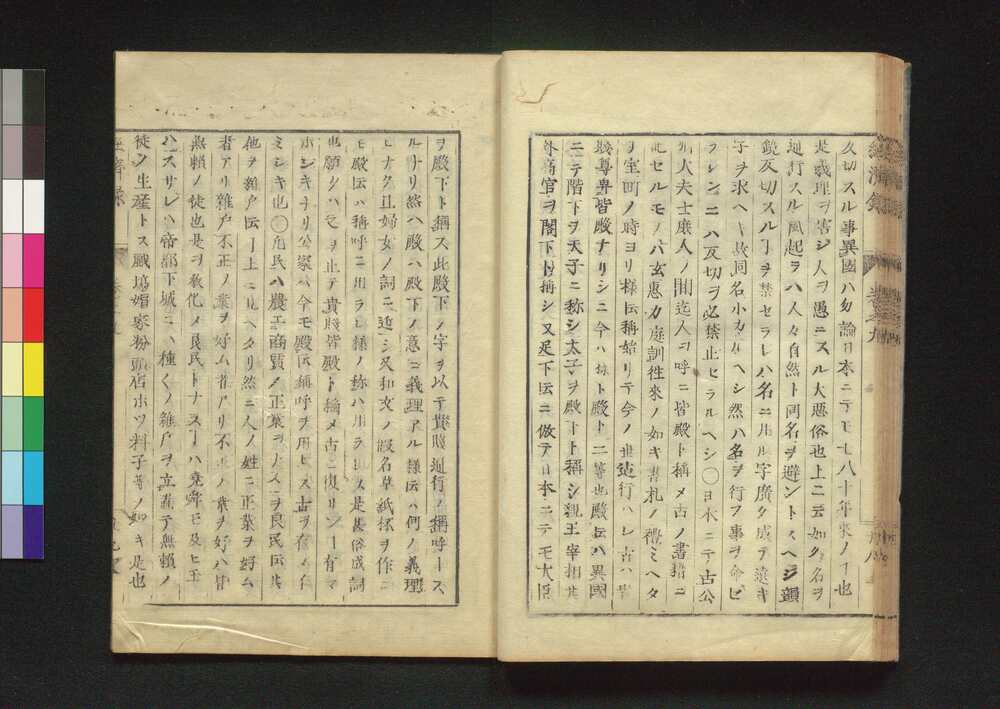 反切スル事異國ハ勿論日本ニテモ七八十年來ノ丁也
是義理ヲ害シ人ヲ愚ニスル大悪俗也上ニ云如ク名ヲ
通行スル風起ラハ人々自然ト同名ヲ避ントスヘシ韻
鏡反切スル丁ヲ禁セラレハ名ニ用ル字廣ク成テ遠キ
字ヲ求ヘ故同名小カルヘシ然ハ名ヲ行フ事ヲ命セ
ラレンニハ反切ヲ必禁止セラルヘシ〇日本ニテ古公
卿大夫士庶人ノ間迄人ヲ呼ニ皆殿ト稱メ古ノ書籍ニ
記セルモノハ玄惠カ庭訓往來ノ如キ書札ノ ミヘタ
ヲ室町ノ時ヨリ様伝稱始リテ今ノ世迄行ハレ古ハ貴
賤尊卑皆殿ナリシニ今ハ様ト殿ト二等也殿伝ハ異國
ニテ階下ヲ天子ニ称シ太子ヲ殿下ト稱シ親王宰相其
外高官ヲ閣下ト稱シ又足下伝ニ倣テ日本ニテモ大臣
ヲ殿下ト稱ス此殿下ノ字ヲ以テ貴賤通行ノ稱呼トス
ルナリ然ハ殿ハ殿下ノ意ニ義理アル様伝ハ何ノ義理
モナク且婦女ノ詞ニ近シ又和文ノ假名草紙抔ヲ作ニ
モ殿伝ハ稱呼ニ用ラレ様ノ称ハ用ラレス是甚俗成詞
也願クハ之ヲ止テ貴賤皆殿ト稱メ古ニ復リ 有 
ホシキナリ公家ハ今モ殿伝稱呼ヲ用ヒス古ヲ存メ行
ミシキ也〇凡民ハ農工商賈ノ正業ヲナス ヲ良民伝其
他ヲ雜戸伝丁上ニ見ヘタリ然ニ人ノ姓ニ正業ヲ好ム
者アリ雜戸不正ノ業ヲ好ム者アリ不正ノ業ヲ好ハ皆
無頼ノ徒也是ヲ教化メ良民トナス丁ハ堯舜モ及ヒ玉
ハスサレハ帝都下城ニハ種々ノ雜戸ヲ立置テ無頼ノ
徒ノ生産トス戲塲娼家粉頭店ホツ料子等ノ如キ是也
經濟録
卷之九